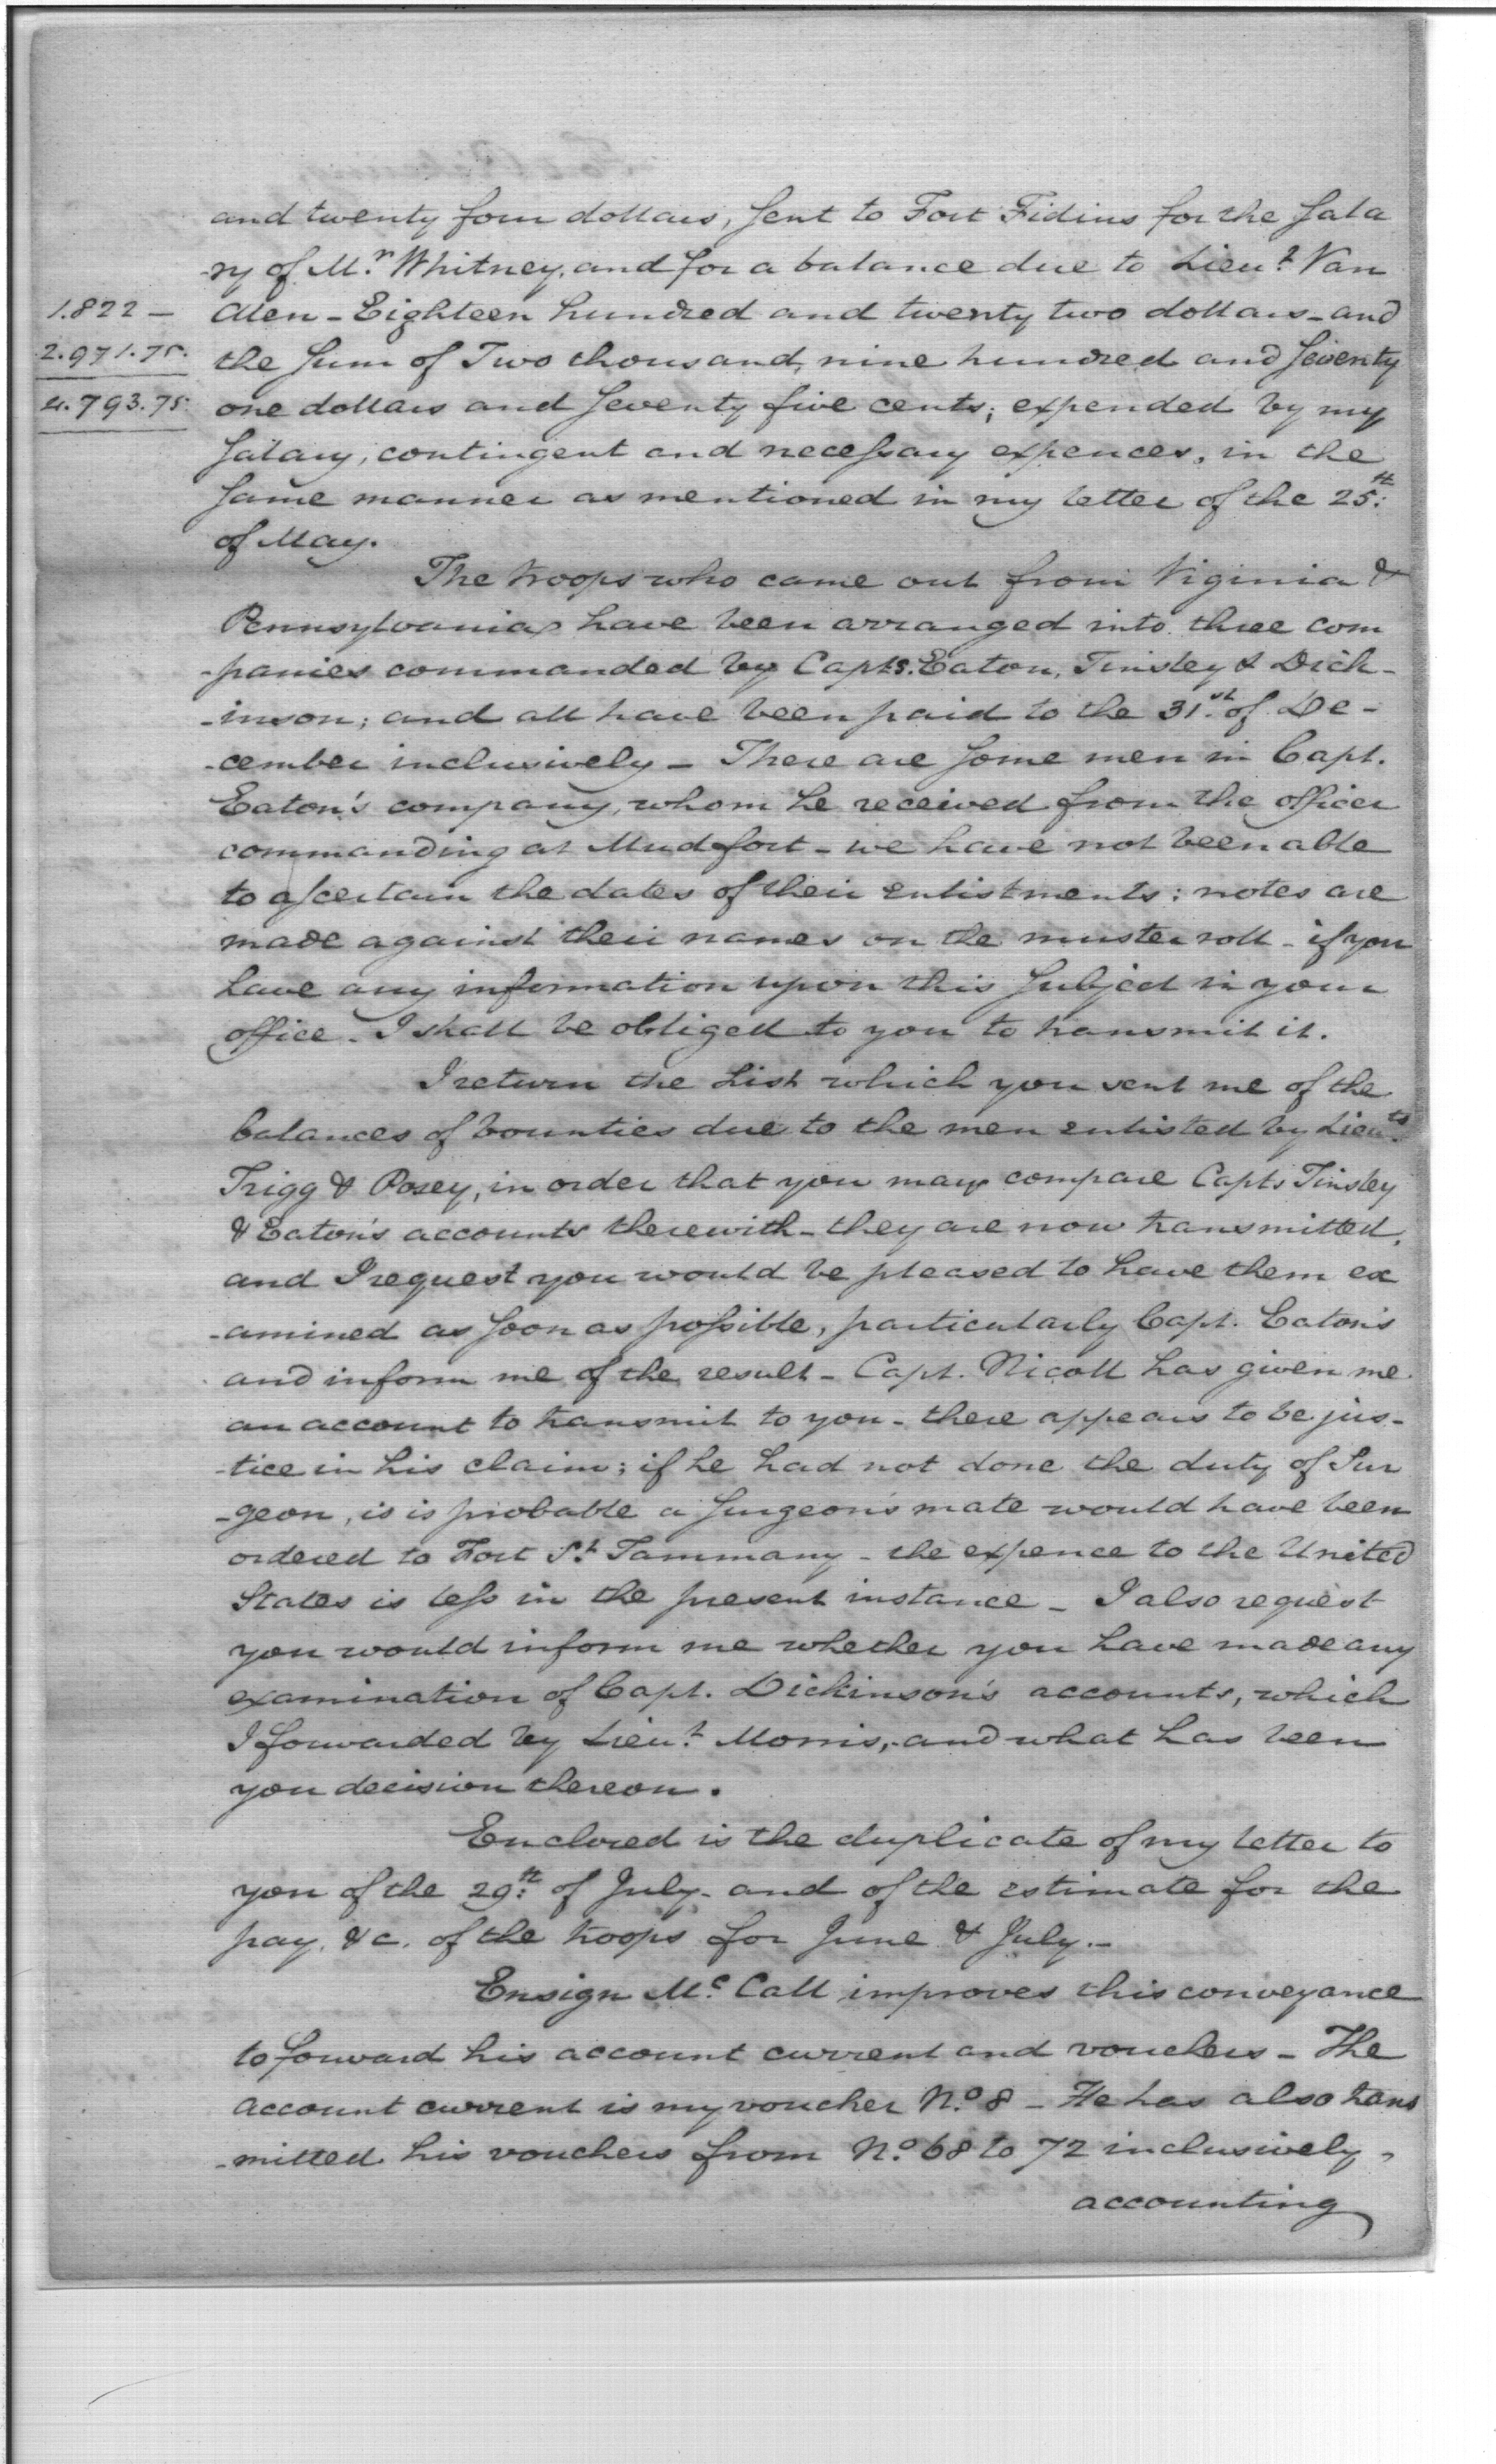 and twenty four dollars, sent to Fort Fidius for the sala
-ry of Mr. Whitney, and for a balance due to Lieut. Van
1.822 — Alen - Eighteen hundred and twenty two dollars - and
2.971.75. the sum of Two thousand, nine hundred and seventy
4.793.75. one dollars and seventy five cents; expended by my
salary, contingent and necessary expences, in the
same manner as mentioned in my letter of the 25th:
of May.
The troops who came out from Viginia &
Pennsylvania have been arranged into three com
-panies commanded by Capts. Eaton, Tinsley & Dick-
-inson; and all have been paid to the 31st. of De-
-cember inclusively - There are some men in Capt.
Eaton's company, whom he received from the officer
commanding at Mud fort - we have not been able
to ascertain the dates of their enlistments: notes are
made against their names on the muster roll - if you
have any information upon this subject in your
office - I shall be obliged to you to transmit it.
I return the List which you sent me of the
balances of bounties due to the men enlisted by Lieuts.
Trigg & Posey, in order that you may compare Capts Tinsley
& Eaton's accounts therewith - they are now transmitted,
and I request you would be pleased to have them ex
-amined as soon as possible, particularly Capt. Eaton's
and inform me of the result - Capt. Nicoll has given me
an account to transmit to you - there appears to be jus-
-tice in his claim; if he had not done the duty of Sur
-geon, is is probable a surgeon's mate would have been
ordered to Fort St. Tammany - the expence to the United
States is less in the present instance - I also request
you would inform me whether you have made any
examination of Capt. Dickinson's accounts, which
I forwarded by Lieut. Morris, and what has been
you decision thereon.
Enclosed is the duplicate of my letter to
you of the 29th: of July - and of the estimate for the
pay, &c. of the troops for June & July.-
Ensign Mc. Call improves this conveyance
to forward his account current and vouchers - The
account current is my voucher No. 8 - He has also trans
-mitted his vouchers from No. 68 to 72 inclusively,
accounting